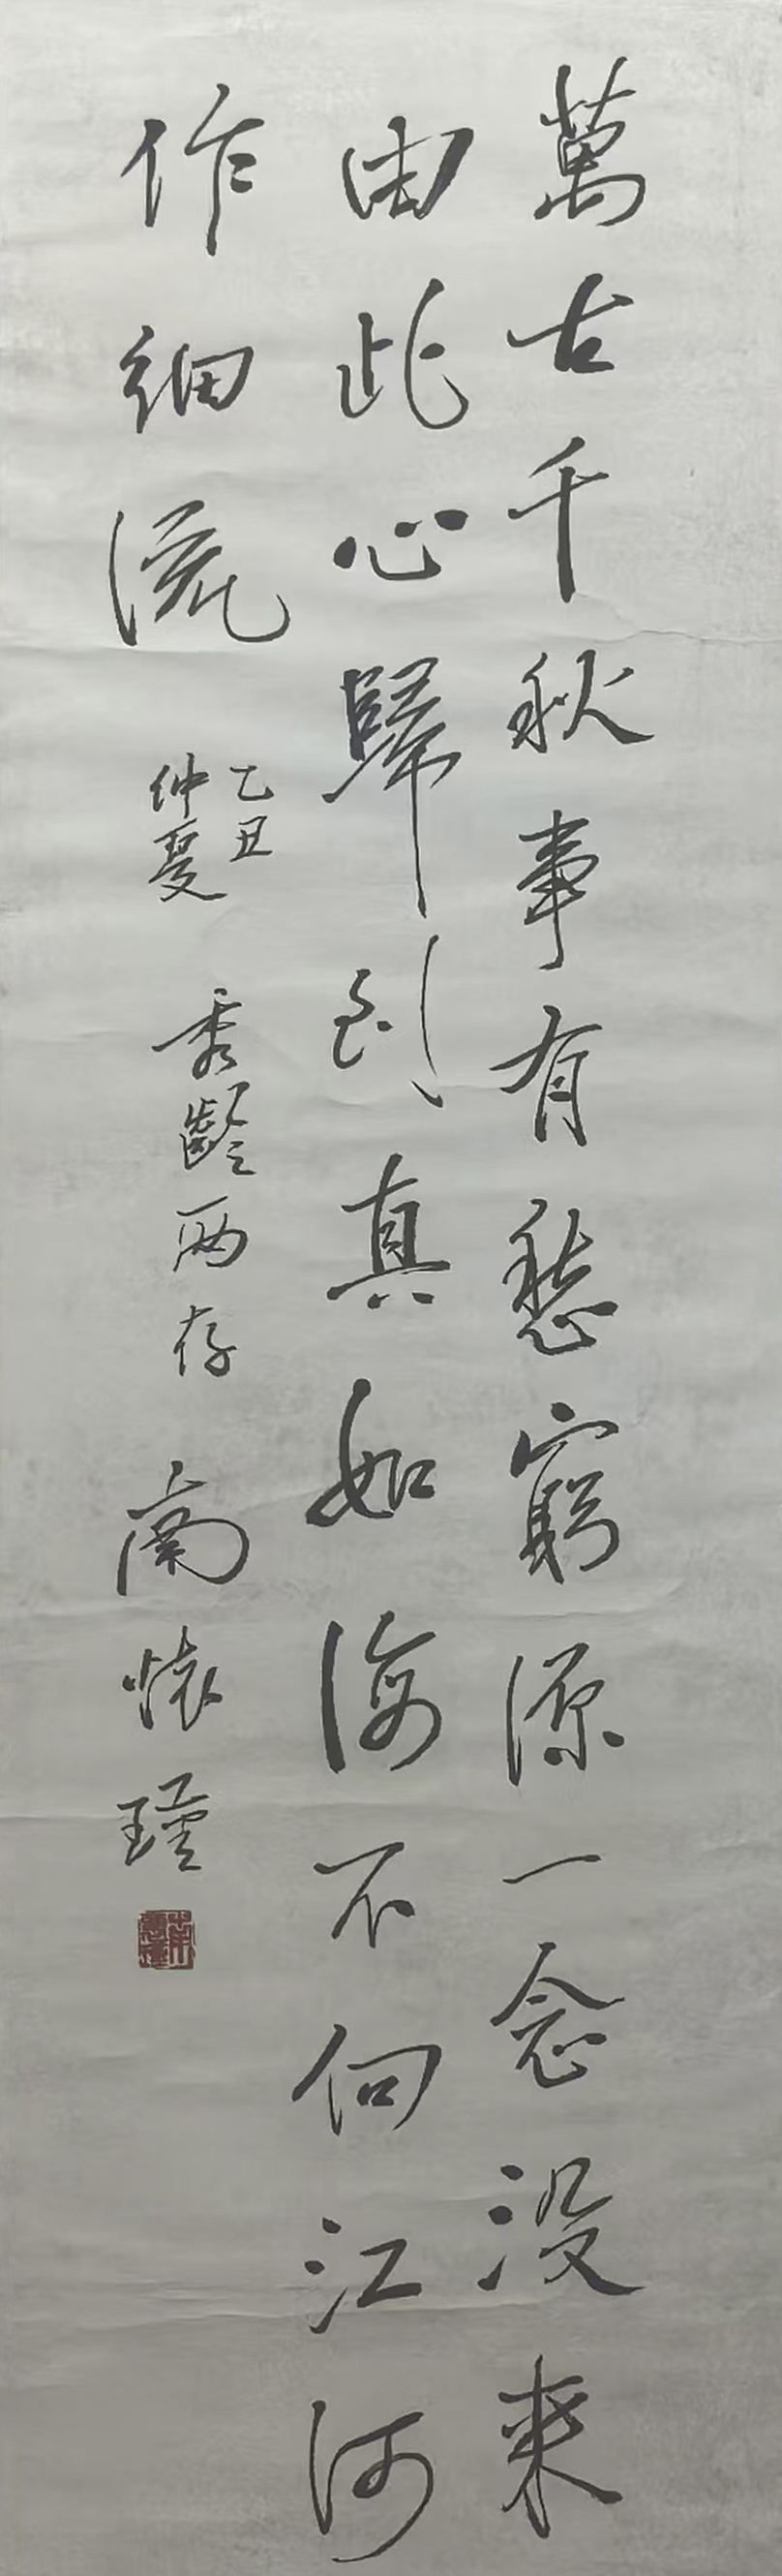 萬古千秋事有愁窮源一念沒來
由此心歸到真如海不向江河
作細流
乙丑
仲夏
秀齡兩存
南懷瑾
南懷瑾